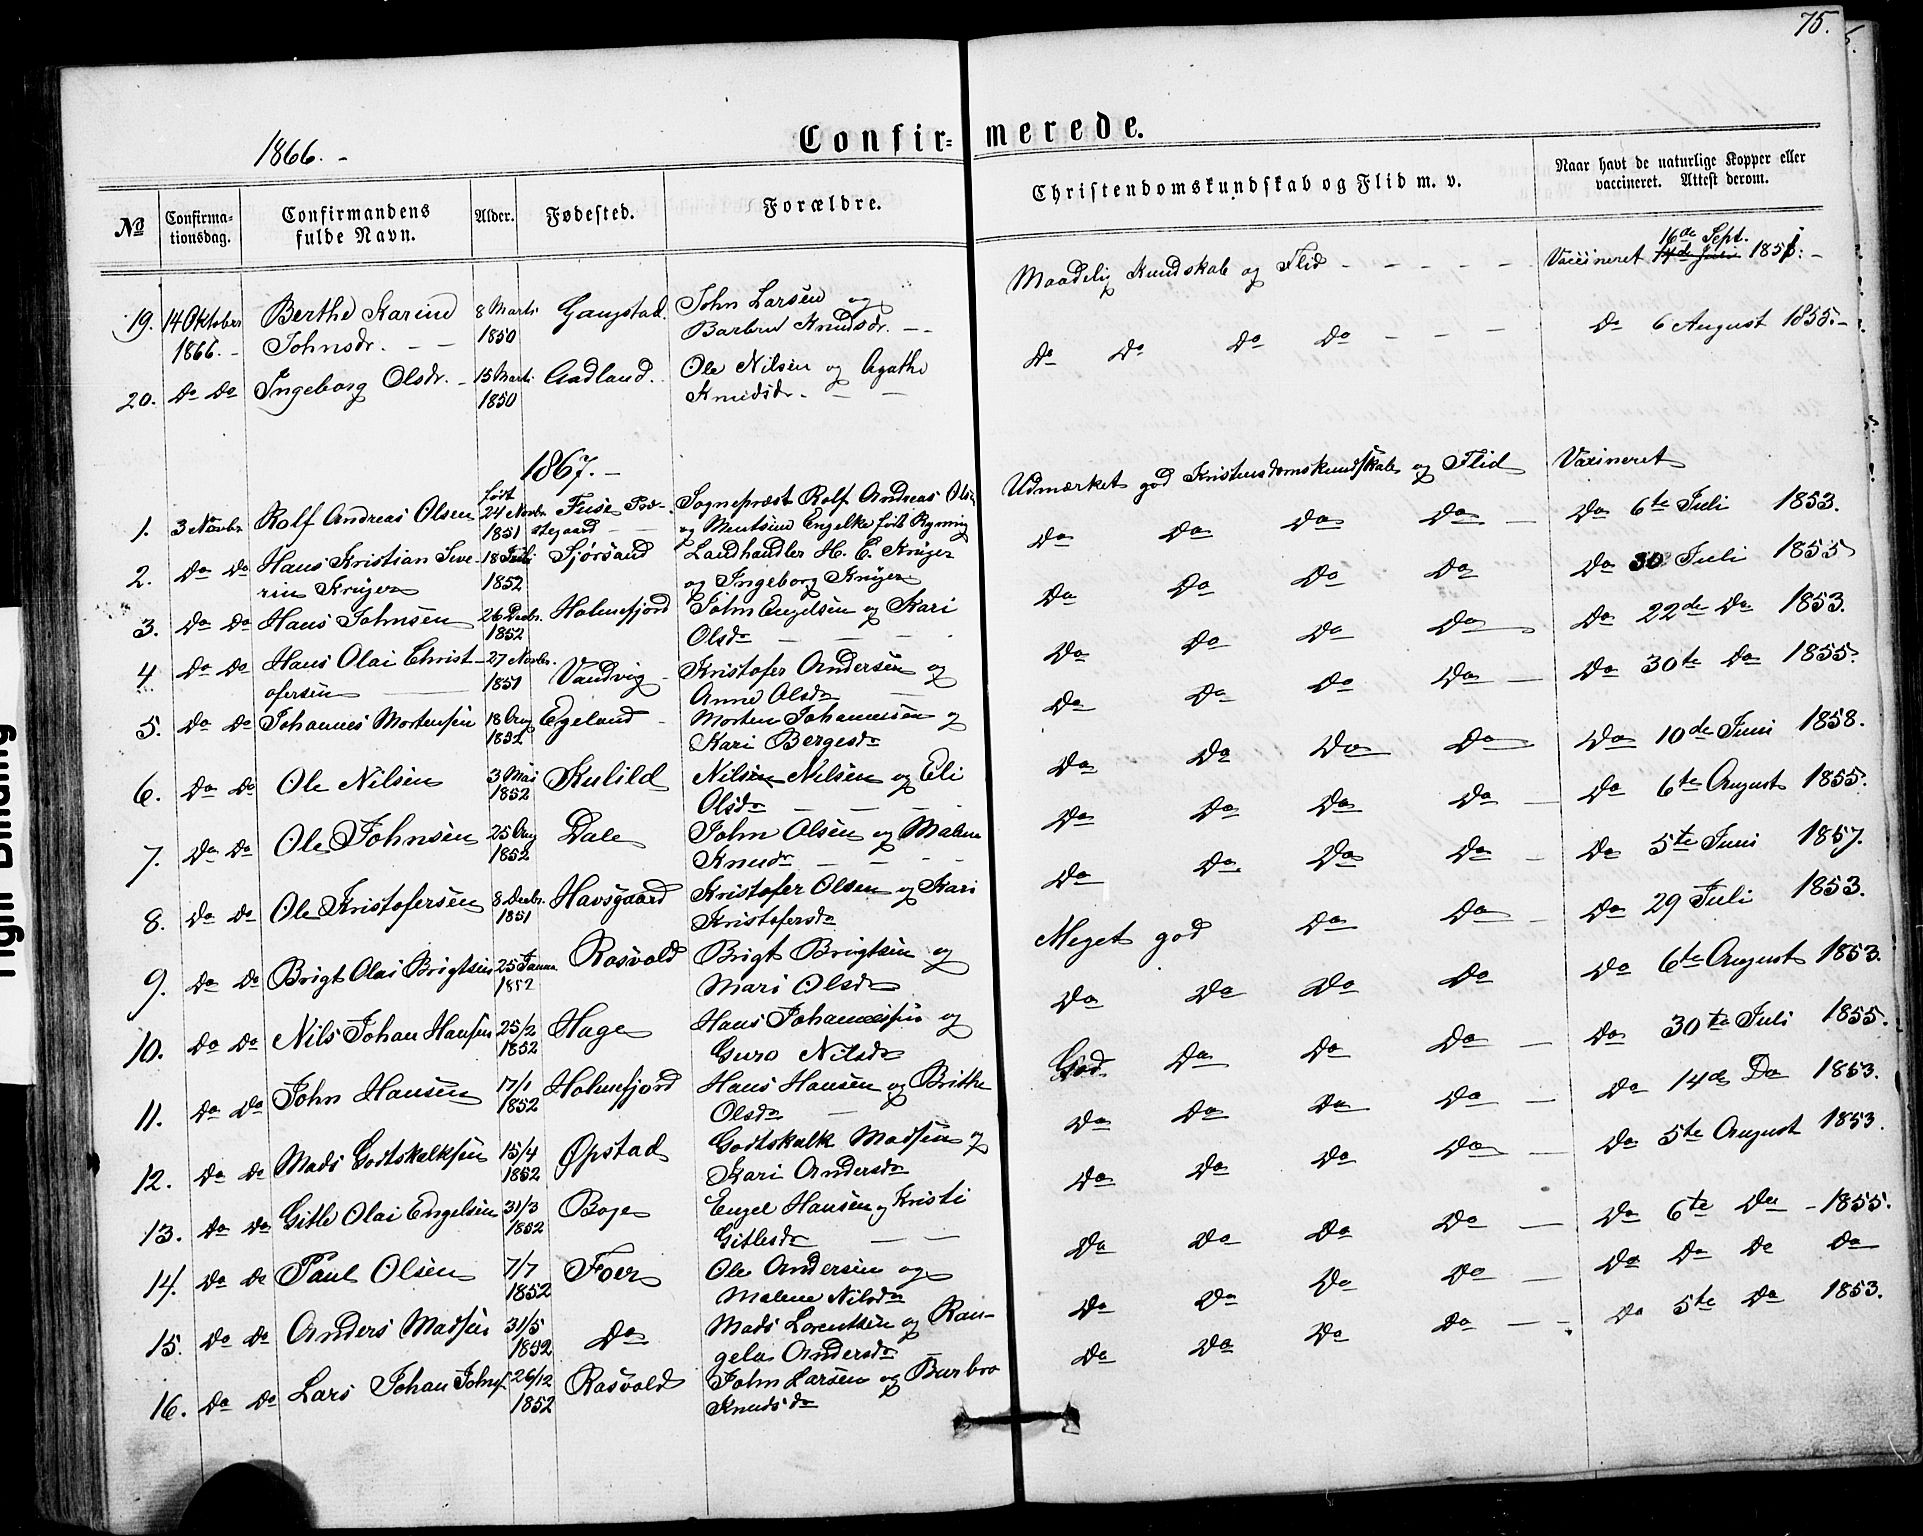 75.
1866. -
Confir- merede.
No
Confirma-
tionsdag.
Confirmandens
fulde Navn.
Alder.
Fødested.
Forældre.
Christendomskundskab og Flid m. v.
Naar havt de naturlige Kopper eller
vaccineret. Attest derom.
19. 14 Oktober Berthe Karine 8 Marts Gangstad. John Larsen og Maadelig Kundskab og Flid - - - - - Vaccineret 16de Sept. 1851. -
1866. - Johnsdr. - - 1850 Barbru Knudsdr. - -
20. Do Do Ingeborg Olsdr. - 15 Marts Aadland. Ole Nilsen og Agathe Do Do Do Do - - - Do 6 August 1855. -
1850 Knudsdr. - -
1867. -
1. 3 Novbr Rolf Andreas Olsen født 24 Novbr. Fuse Præ- Sognepræst Rolf Andreas Olsen Udmærket god Kristendomskundskab og Flid Vaxineret
1851 stegaard og Mentsine Engelke født Rynning Do 6te Juli 1853.
2. Do Do Hans Kristian Seve- 18 Juli Sjørsand Landhandler H. E. Krüger Do Do Do Do - Do 30 Juli 1855
rin Krüger 1852 og Ingeborg Krüger
3. Do Do Hans Johnsen 26 Decbr. Holmefjord John Engelsen og Kari Do Do Do Do Do 22de Do 1853.
1852 Olsdr - - -
4. Do Do Hans Olai Christ- 27 Novbr. Vandvig - Kristofer Andersen og Do Do Do Do Do 30te Do 1855.
ofersen 1851 Anne Olsdr -
5. Do Do Johannes Mortensen 18 Aug Ergeland - Morten Johannessen og Do Do Do Do - Do 10de Juni 1858.
1852 Kari Bergesdr
6. Do Do Ole Nilsen 3 Mai Kulild Nils Nilsen og Eli Do Do Do Do Do 6te August 1855.
1852 Olsdr - - -
7. Do Do Ole Johnsen 25 Aug Dale John Olsen og Malene Do Do Do Do - Do 5te Juni 1857.
1852 Knudr - - -
8. Do Do Ole Kristofersen 8 Decbr. Havsgaard Kristofer Olsen og Kari Do Do Do Do - Do 29 Juli 1853.
1851 Kristofersdr
9. Do Do Brigt Olai Brigtsen 25 Janua. Røsvold Brigt Brigtsen og Meget god Do Do - Do 6te August 1853.
1852 Mari Olsdr
10. Do Do Nils Johan Hansen 25/2 Hage Hans Johannessen og Do Do Do Do Do 30te Juli 1855.
1852 Guro Nilsdr
11. Do Do John Hansen 17/1 Holmefjord Hans Hansen og Brithe God Do Do Do - Do 14de Do 1853.
1852 Olsdr -
12. Do Do Mads Godtskalksen 15/4 Øpstad Godtskalk Madsen og Do Do Do Do - Do 5te August 1853.
1852 Kari Andersdr
13. Do Do Gitle Olai Engelsen 31/3 Boge Engel Hansen og Kristi Do Do Do Do - Do 6te Do - 1855.
1852 Gitlesdr - -
14. Do Do Paul Olsen 7/7 Foer Ole Andersen og Do Do Do Do - Do Do Do Do
1852 Malene Nilsdr
15. Do Do Anders Madsen 31/5 Do Mads Lorentsen og Ran- Do Do Do Do - Do 5te Do 1853.
1852 gela Andersdr
16. Do Do Lars Johan Johns. 26/12 Røsvold John Larsen og Barbro Do Do Do Do - -
1852 Knudsdr